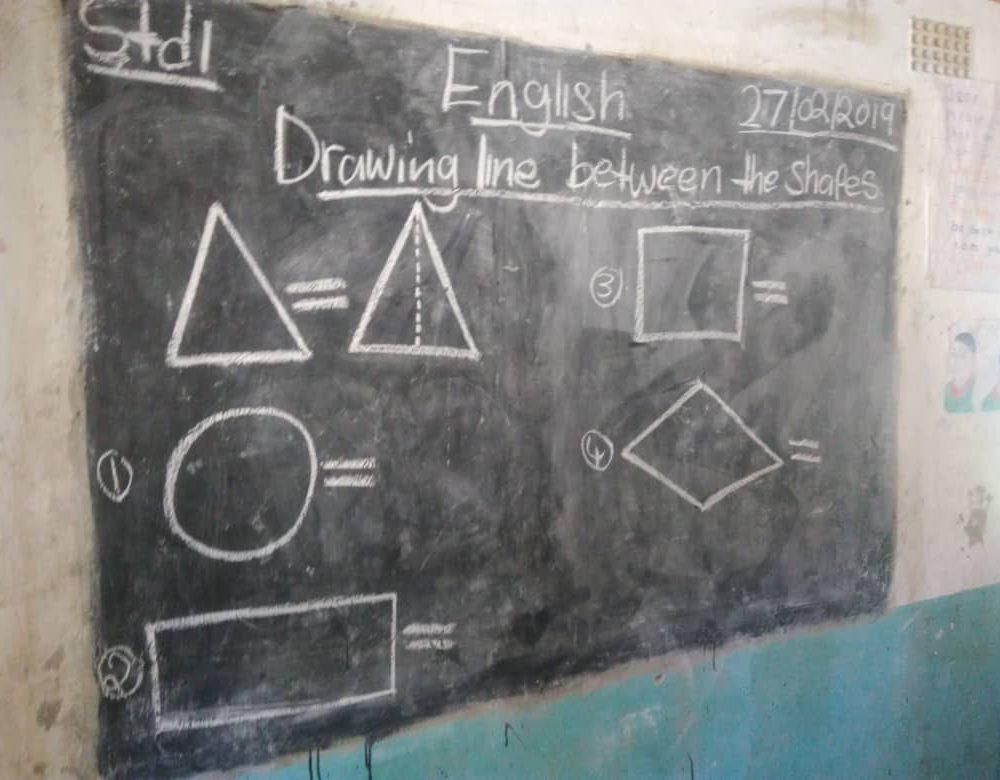 Std1
English
27/02/2019
Drawing line between the shapes
=
1 =
2 =
3 =
4 =